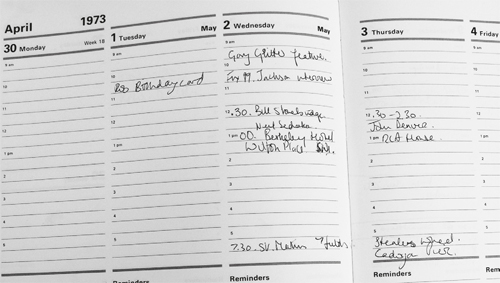 April 1973
30 Monday Week 18
9 am
10
11
12
1 pm
2
3
4
5
Reminders
1 Tuesday May
9 am
10
Bob Birthday card
11
12
1 pm
2
3
4
5
Reminders
2 Wednesday May
9 am
Gary Glitter feature.
10
Jackson interview
11
12.30. Bill
Neil Sedaka
1 pm
Berkeley Hotel
Wilton Place
2
3
4
5
7.30. St. Martins Fields
Reminders
3 Thursday
9 am
10
11
12.30 - 2.30
John Denver.
1 pm RCA House.
2
3
4
5
Stealers Wheel.
Reminders
4 Friday
9 am
10
11
12
1 pm
2
3
4
5
Reminders